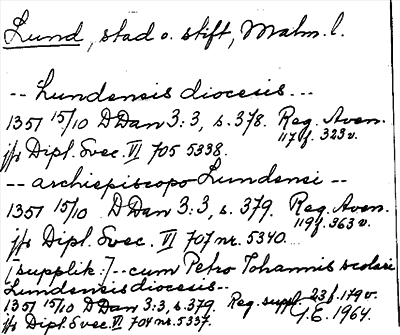 Lund, stad o. stift, Malm. l.
-- Lundensis diocesis --
1351 15/10 DDan 3:3, s. 378. Reg. Aven. 117 f. 323 v.
jfr Dipl. Svec. VI 705 5338.
-- archiepiscopo Lundensi --
1351 15/10 DDan 3:3, s. 379. Reg. Aven. 119 f. 363 v.
jfr Dipl. Svec. VI 707 nr. 5340.
[supplik:] -- cum Petro Iohannis scolari
Lundensis diocesis --
1351 15/10 DDan 3:3, s. 379. Reg. suppl. 23 f. 179 v.
jfr Dipl. Svec. VI 704 nr. 5337. G.E. 1964.